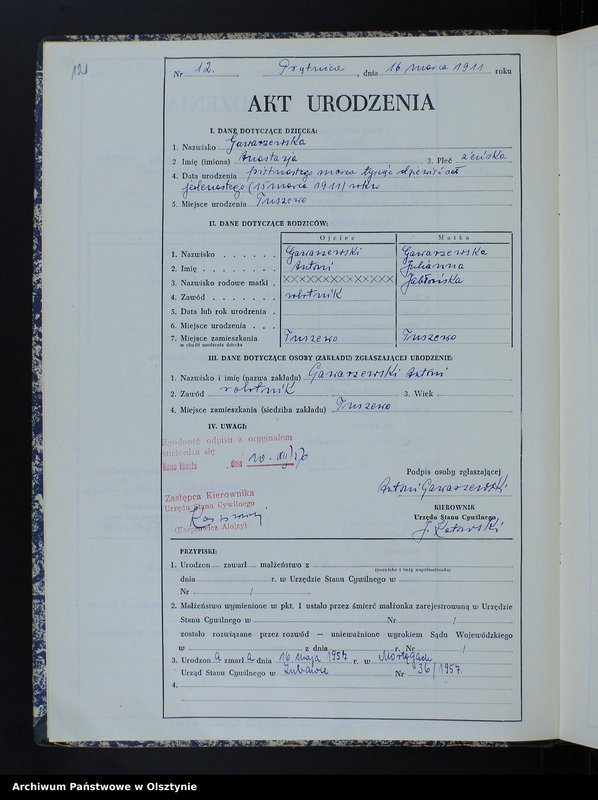 121
Nr 12. Prątnica, dnia 16 marca 1911 roku
AKT URODZENIA
I. DANE DOTYCZĄCE DZIECKA:
1. Nazwisko Gawarzewska
2 Imię (imiona) Anastazja 3. Płeć żeńska
4. Data urodzenia piętnastego marca tysiąc dziewięćset
jedenastego (15 marca 1911) roku
5. Miejsce urodzenia Tuszewo
II. DANE DOTYCZĄCE RODZICÓW:
Ojciec Matka
1. Nazwisko Gawarzewski Gawarzewska
2. Imię Antoni Julianna
3. Nazwisko rodowe matki XXXXXXXXXXXXX Jabłońska
4. Zawód robotnik
5. Data lub rok urodzenia
6. Miejsce urodzenia
7. Miejsce zamieszkania Tuszewo Tuszewo
w chwili urodzenia dziecka
III. DANE DOTYCZĄCE OSOBY (ZAKŁADU) ZGŁASZAJĄCEJ URODZENIE:
1. Nazwisko i imię (nazwa zakładu) Gawarzewski Antoni
2. Zawód robotnik 3. Wiek
4. Miejsce zamieszkania (siedziba zakładu) Tuszewo
IV. UWAGI:
Zgodność odpisu z oryginałem
stwierdza się
, dnia 10.
Podpis osoby zgłaszającej
Antoni Gawarzewski
Zastępca Kierownika
Urzędu Stanu Cywilnego
(Kasprowicz Alojzy)
KIEROWNIK
Urzędu Stanu Cywilnego
PRZYPISKI:
1. Urodzon zawarł małżeństwo z
(nazwisko i imię współmałżonka)
dnia r. w Urzędzie Stanu Cywilnego w
Nr /
2. Małżeństwo wymienione w pkt. 1 ustało przez śmierć małżonka zarejestrowaną w Urzędzie
Stanu Cywilnego w Nr /
zostało rozwiązane przez rozwód — unieważnione wyrokiem Sądu Wojewódzkiego
w z dnia r. Nr /
3. Urodzona zmarła dnia 16 maja 1957 r. w Mortęgach
Urząd Stanu Cywilnego w Lubawie Nr 36/1957
4.
Archiwum Państwowe w Olsztynie